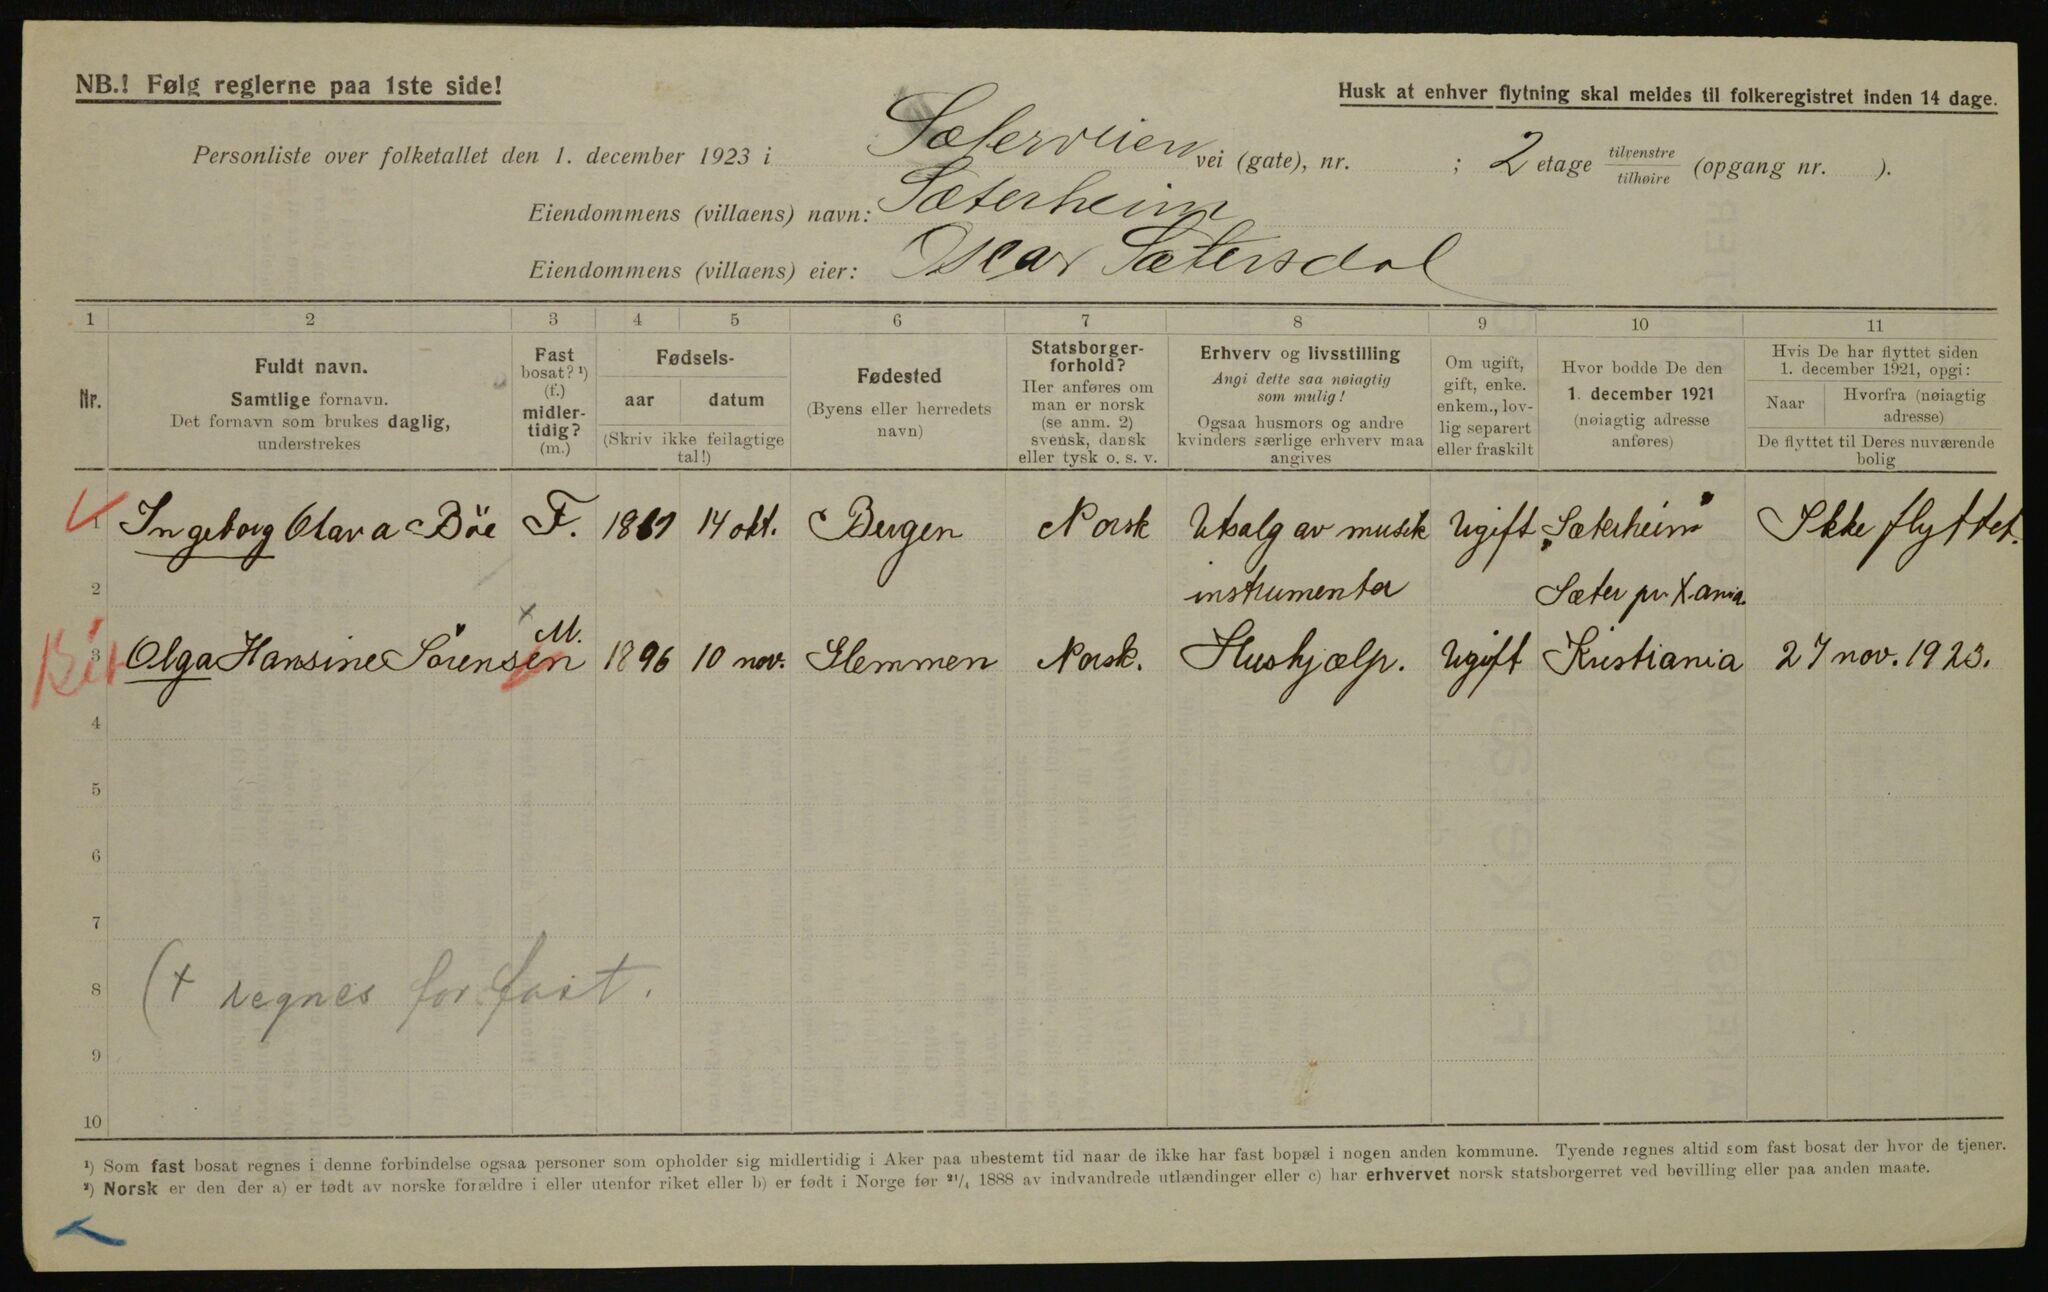 NB.! Følg reglerne paa 1ste side!
Husk at enhver flytning skal meldes til folkeregistret inden 14 dage.
Personliste over folketallet den 1. december 1923 i Sæterveien vei (gate), nr. ; 2 etage tilvenstre tilhøire (opgang nr. ).
Eiendommens (villaens) navn: Sæterheim
Eiendommens (villaens) eier: Oscar Sætersdal
1 2 3 4 5 6 7 8 9 10 11
Nr.
Fuldt navn.
Samtlige fornavn.
Det fornavn som brukes daglig,
understrekes
Fast
bosat? ¹)
(f.)
midler-
tidig?
(m.)
Fødsels-
aar datum
(Skriv ikke feilagtige
tal!)
Fødested
(Byens eller herredets
navn)
Statsborger-
forhold?
Her anføres om
man er norsk
(se anm. 2)
svensk, dansk
eller tysk o. s. v.
Erhverv og livsstilling
Angi dette saa nøiagtig
som mulig!
Ogsaa husmors og andre
kvinders særlige erhverv maa
angives
Om ugift,
gift, enke.
enkem., lov-
lig separert
eller fraskilt
Hvor bodde De den
1. december 1921
(nøiagtig adresse
anføres)
Hvis De har flyttet siden
1. december 1921, opgi:
Naar
Hvorfra (nøiagtig
adresse)
De flyttet til Deres nuværende
bolig
1 Ingeborg Olava Böe F. 1861 14 okt. Bergen Norsk Utsalg av musik Ugift "Sæterheim" Ikke flyttet.
2 instrumenter Sæter pr. Xania.
x
3 Olga Hansine Sörensen M. 1896 10 nov. Glemmen Norsk. Hushjælp. Ugift Kristiania 27 nov. 1923.
4
5
6
7
8 (+ regnes for fast.
9
10
¹) Som fast bosat regnes i denne forbindelse ogsaa personer som opholder sig midlertidig i Aker paa ubestemt tid naar de ikke har fast bopæl i nogen anden kommune. Tyende regnes altid som fast bosat der hvor de tjener.
²) Norsk er den der a) er født av norske forældre i eller utenfor riket eller b) er født i Norge før 21/4 1888 av indvandrede utlændinger eller c) har erhvervet norsk statsborgerret ved bevilling eller paa anden maate.